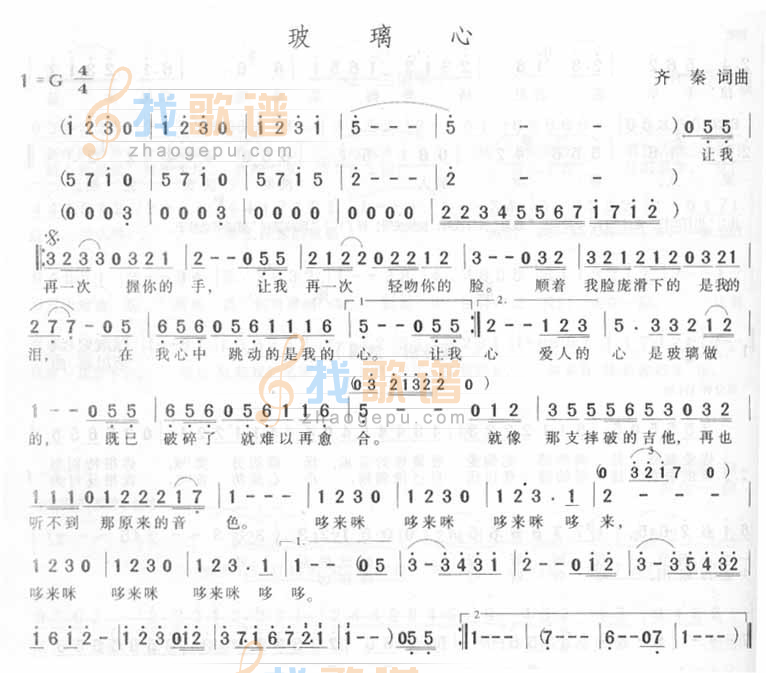 玻璃心
1=G 4/4
齐秦 词曲
找歌谱
zhaogepu.com
(1 2 3 0 | 1 2 3 0 | 1 2 3 1 | 5 - - - | 5 - - ) 0 5 5 |
让我
(5 7 1 0 | 5 7 1 0 | 5 7 1 5 | 2 - - - | 2 )
(0 0 0 3 | 0 0 0 3 | 0 0 0 0 | 0 0 0 0 | 2 2 3 4 5 5 6 7 1 7 1 2 )
3 2 3 3 0 3 2 1 | 2 - - 0 5 5 | 2 1 2 2 0 2 2 1 2 | 3 - - 0 3 2 | 3 2 1 2 1 2 0 3 2 1
再一次 握你的 手, 让我 再一次 轻吻你的 脸。 顺着 我脸庞滑下的 是我的
1. 2.
2 7 7 - 0 5 | 6 5 6 0 5 6 1 1 1 6 | 5 - - 0 5 5 :| 2 - - 1 2 3 | 5 . 3 3 2 1 2
泪, 在 我心中 跳动的是我的 心。 让我 心 爱人的 心 是玻璃做
(0 3 2 1 3 2 2 0 )
1 - - 0 5 5 | 6 5 6 0 5 6 1 1 6 | 5 - - 0 1 2 | 3 5 5 5 6 5 3 0 3 2
的, 既已 破碎了 就难以再愈 合。 就像 那支摔破的吉他, 再也
(0 3 2 1 7 0 )
1 1 1 0 1 2 2 2 1 7 | 1 - - - | 1 2 3 0 | 1 2 3 0 | 1 2 3 . 1 | 2 - - -
听不到 那原来的音 色。 哆来咪 哆来咪 哆来咪 哆 来,
1.
1 2 3 0 | 1 2 3 0 | 1 2 3 . 1 | 1 - - (0 5 | 3 - 3 5 4 3 2 | 2 - - 0 1 2 | 3 - 3 5 4 3 2
哆来咪 哆来咪 哆来咪 哆 哆。
2.
1 6 1 2 - | 1 2 3 0 1 2 | 3 7 1 6 7 2 1 | 1 - - ) 0 5 5 :| 1 - - - | (7 - - - | 6 - - 0 7 | 1 - - - )
找歌谱
zhaogepu.com
找歌谱